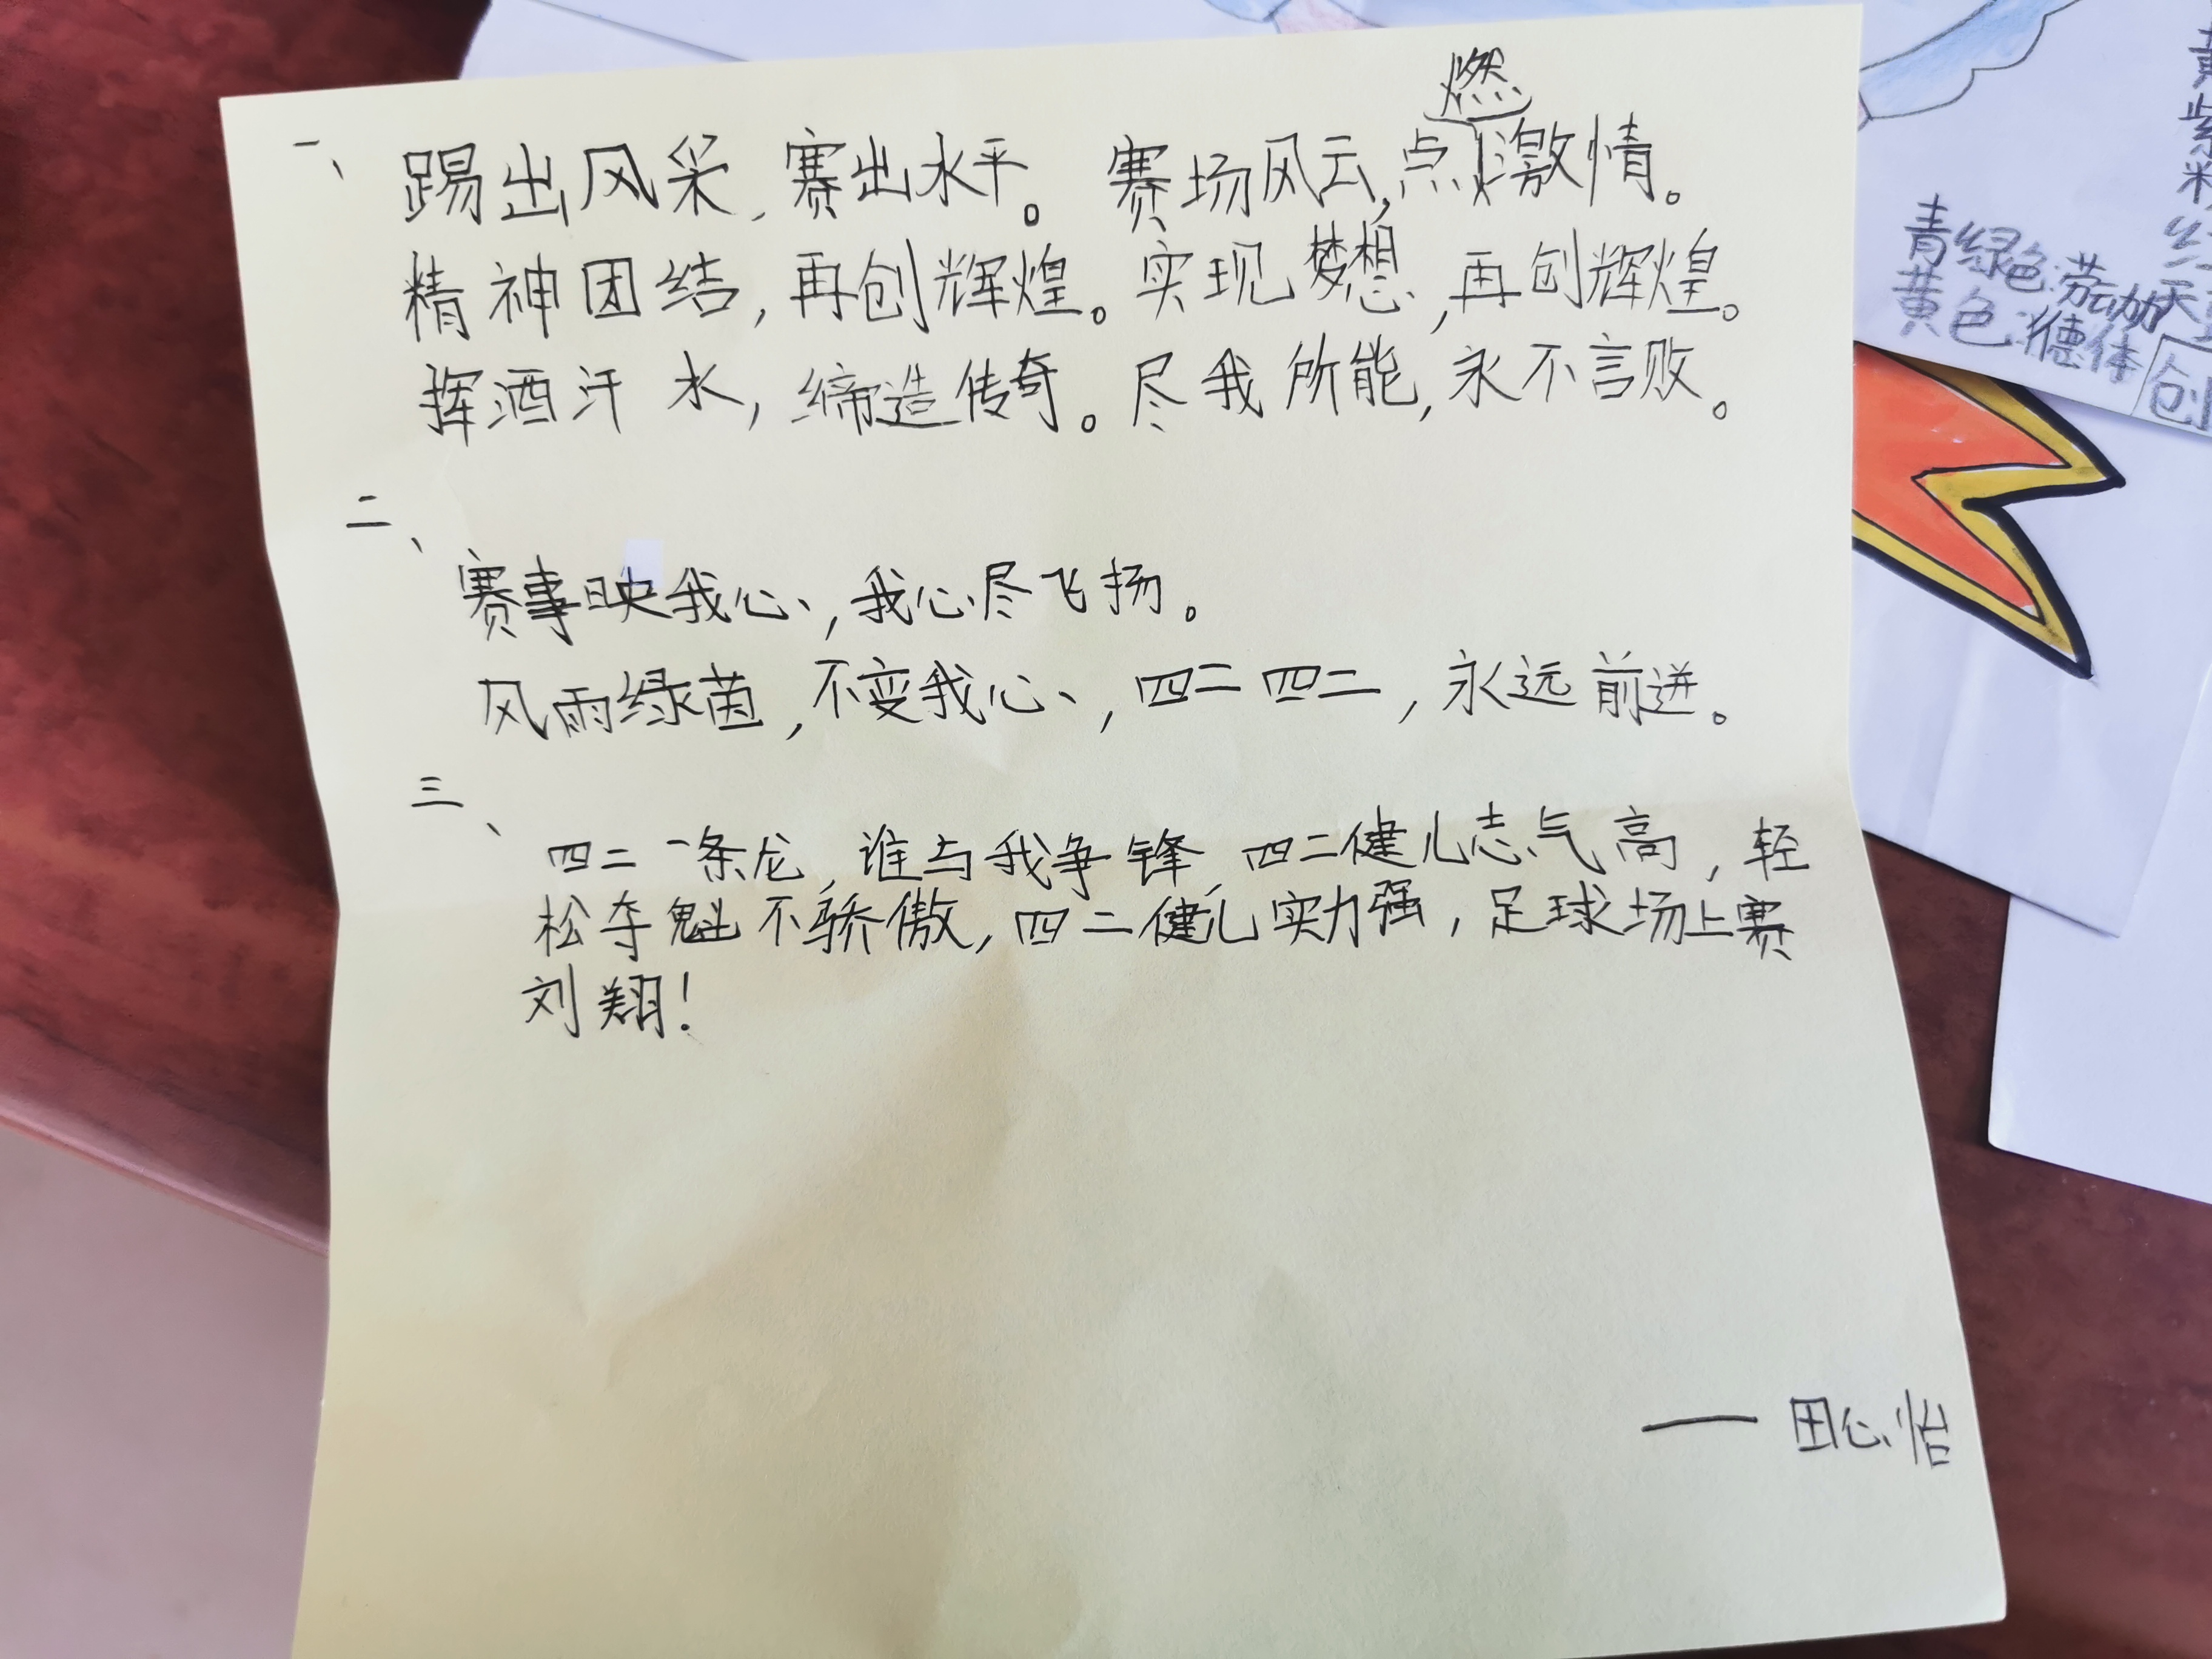 一、
踢出风采,赛出水平。 赛场风云,点燃激情。
精神团结,再创辉煌。实现梦想,再创辉煌。
挥洒汗水,缔造传奇。尽我所能,永不言败。
二、
赛事映我心,我心尽飞扬。
风雨绿茵,不变我心,四二四二,永远前进。
三、
四二一条龙,谁与我争锋,四二健儿志气高,轻
松夺魁不骄傲,四二健儿实力强,足球场上赛
刘翔!
——田心怡
青绿色:劳动
黄色:德体
创